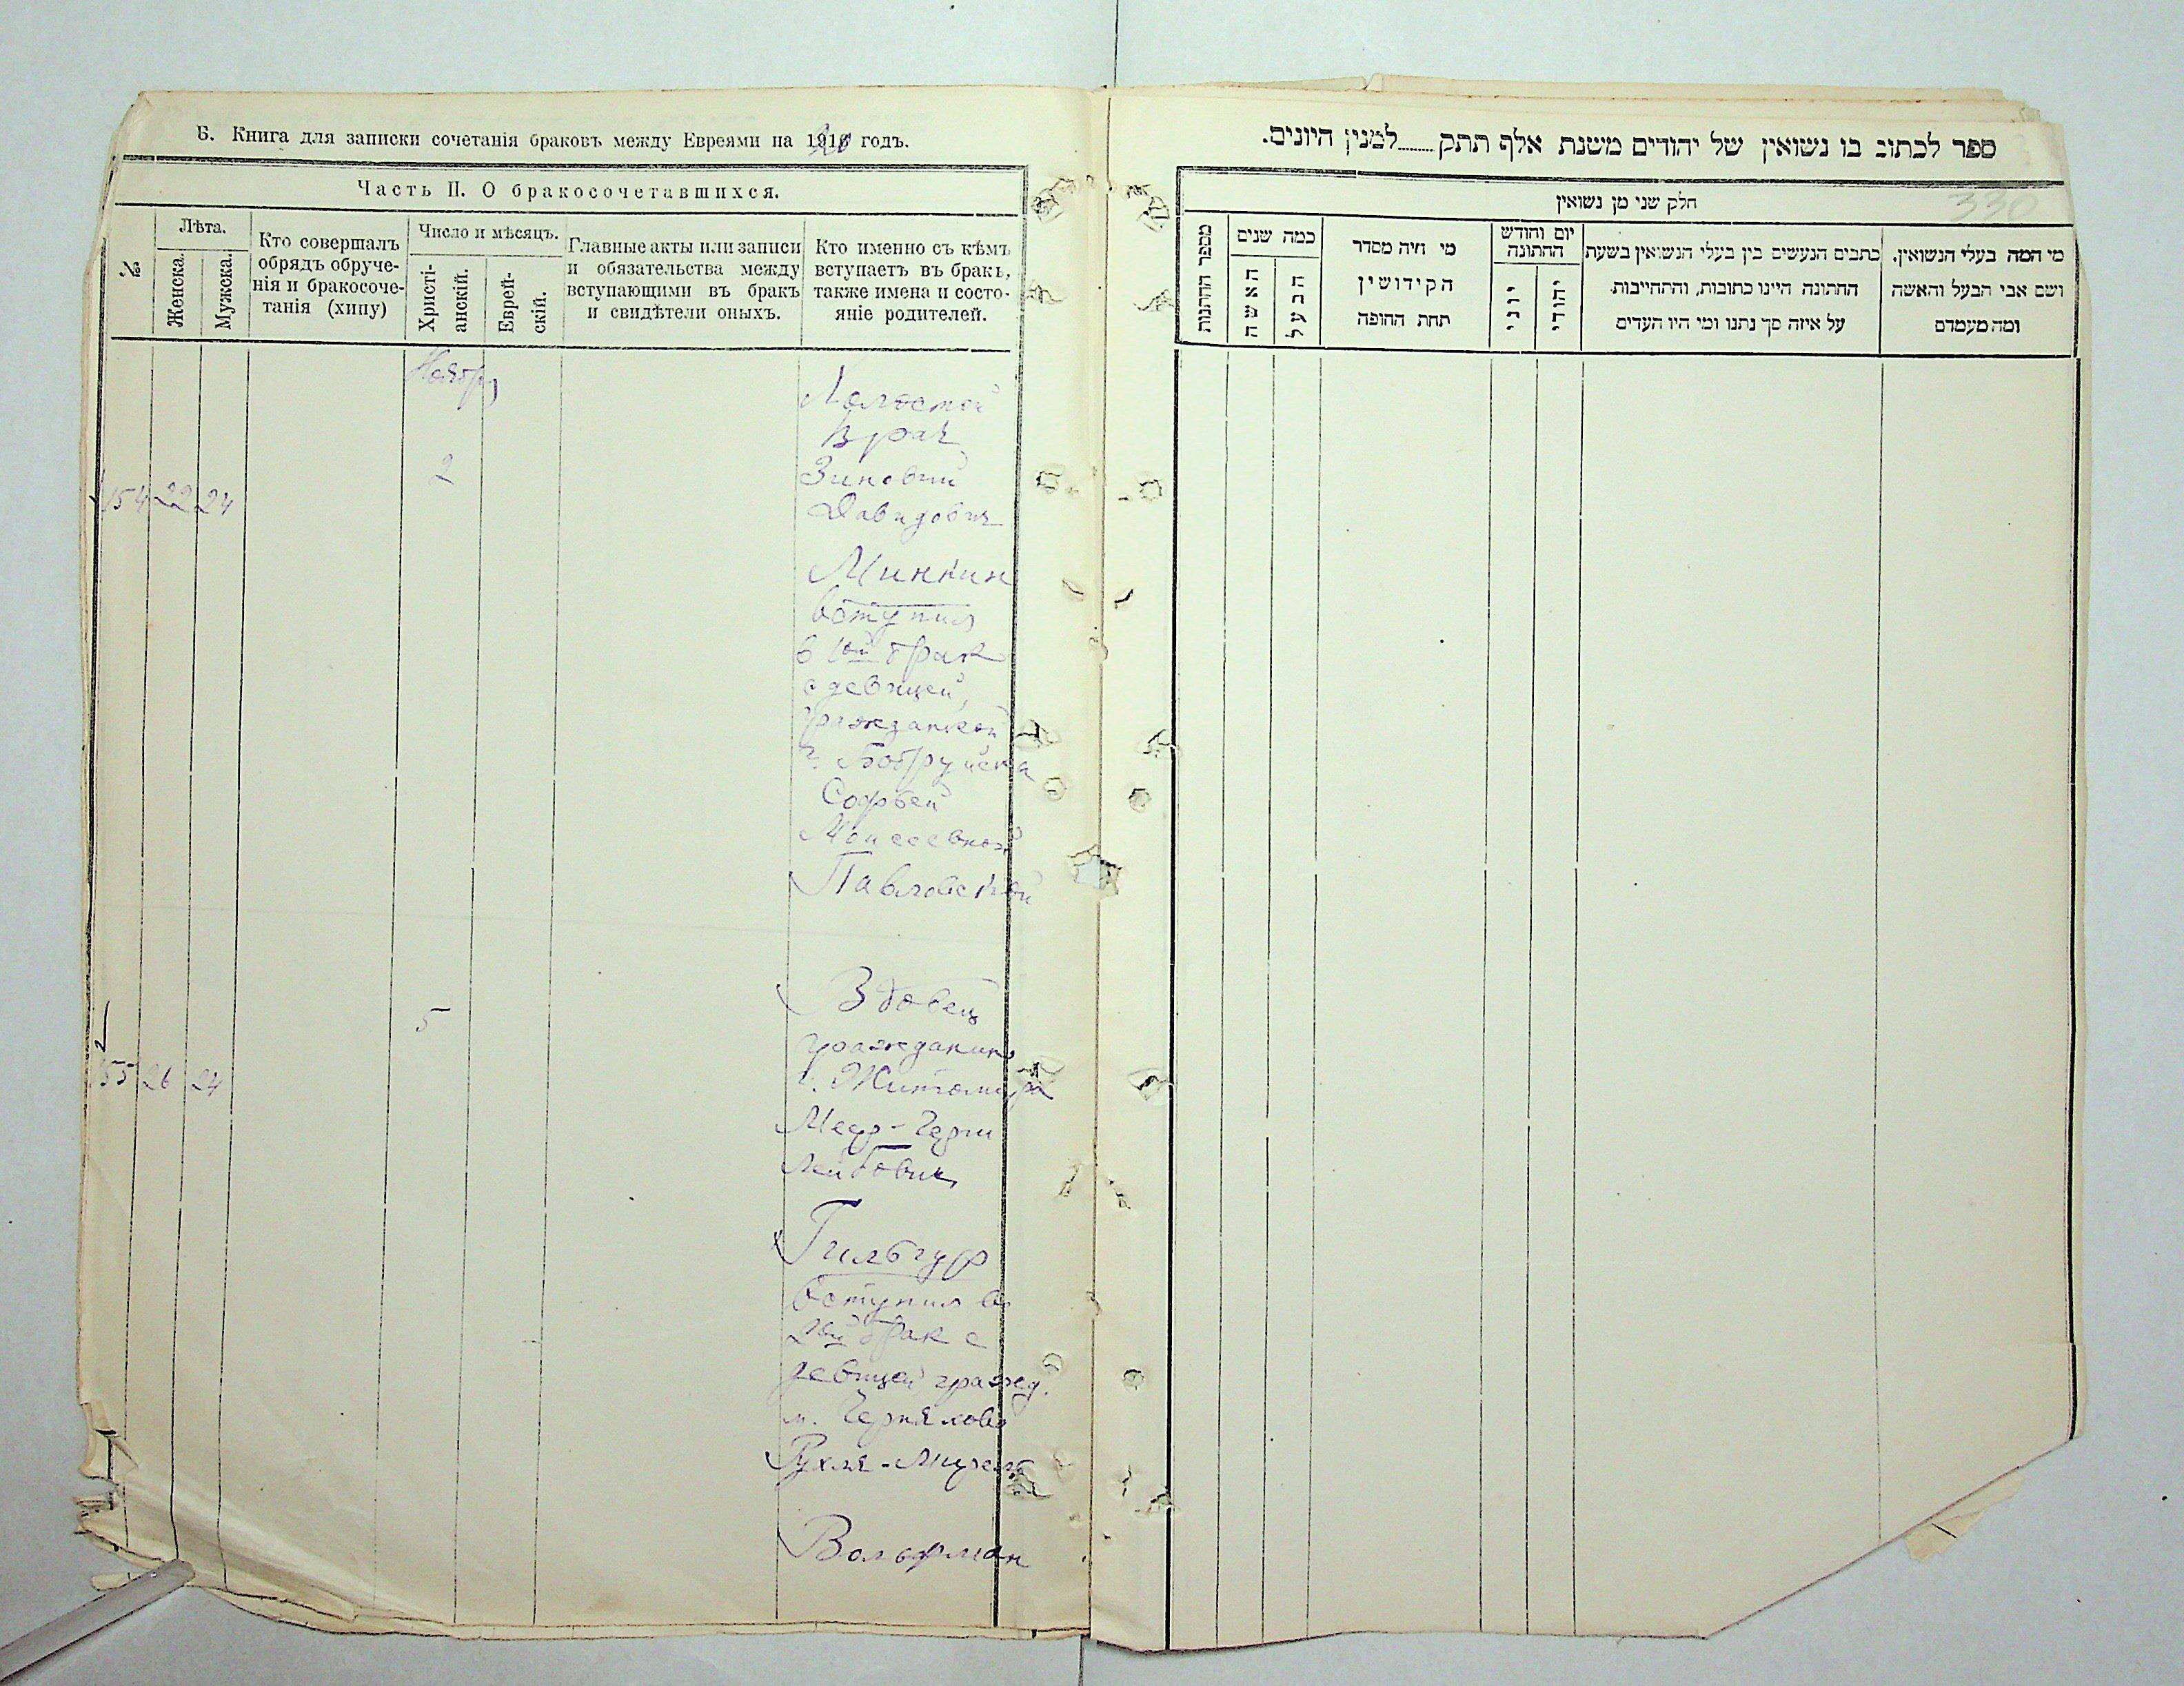 Б. Книга для записки сочетанія браковъ между Евреями на 1920 годъ.
Часть II. О бракосочетавшихся.
№
Лѣта.
Женска.
Мужска.
Кто совершалъ
обрядъ обруче-
нія и бракосоче-
танія (хипу)
Число и мѣсяцъ.
Христі-
анскій.
Еврей-
скій.
Главные акты или записи
и обязательства между
вступающими въ бракъ
и свидѣтели оныхъ.
Кто именно съ кѣмъ
вступаетъ въ бракъ,
также имена и состо-
яніе родителей.
Ноябрь
154 22 24
2
Холостой
врач
Зиновий
Давидович
Минкин
вступил
в 1ый брак
с девицей,
гражданкой
г. Бобруйска
Софьей
Моисеевной
Павловской
155 26 24
5
Вдовец
гражданин
г. Житомира
Меер-Герш
Лейбович
Гильбур
вступил во
2ой брак с
девицей гражд.
м. Черняхово
Рухля-Мирель
Вольфман
ספר לכתוב בו נשואין של יהודים משנת אלף תתק........למנין היונים.
330
חלק שני מן נשואין
מספר החתונות
כמה שנים
האשה
הבעל
מי היה מסדר
הקידושין
תחת החופה
יום וחודש
החתונה
יוני
יהודי
כתבים הנעשים בין בעלי הנשואין בשעת
החתונה היינו כתובות, והתחייבות
על איזה סך נתנו ומי היו העדים
מי המה בעלי הנשואין.
ושם אבי הבעל והאשה
ומה מעמדם